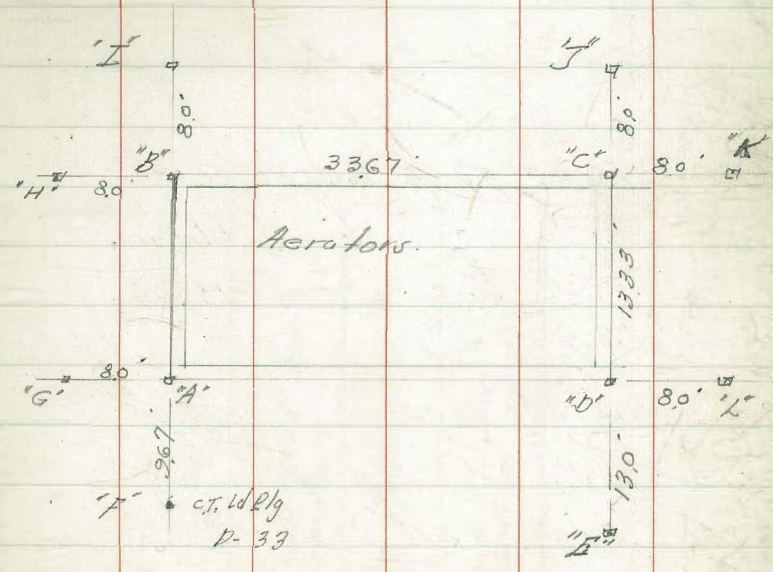 "I"
"J"
8.0'
8.0'
"B"
33.67'
"C"
8.0'
"K"
"H"
8.0
Aerators.
13.33'
8.0'
"G"
"A"
"D"
8.0'
"L"
9.67'
13.0'
"F"
C.T. Ld Plg
D-33
"E"